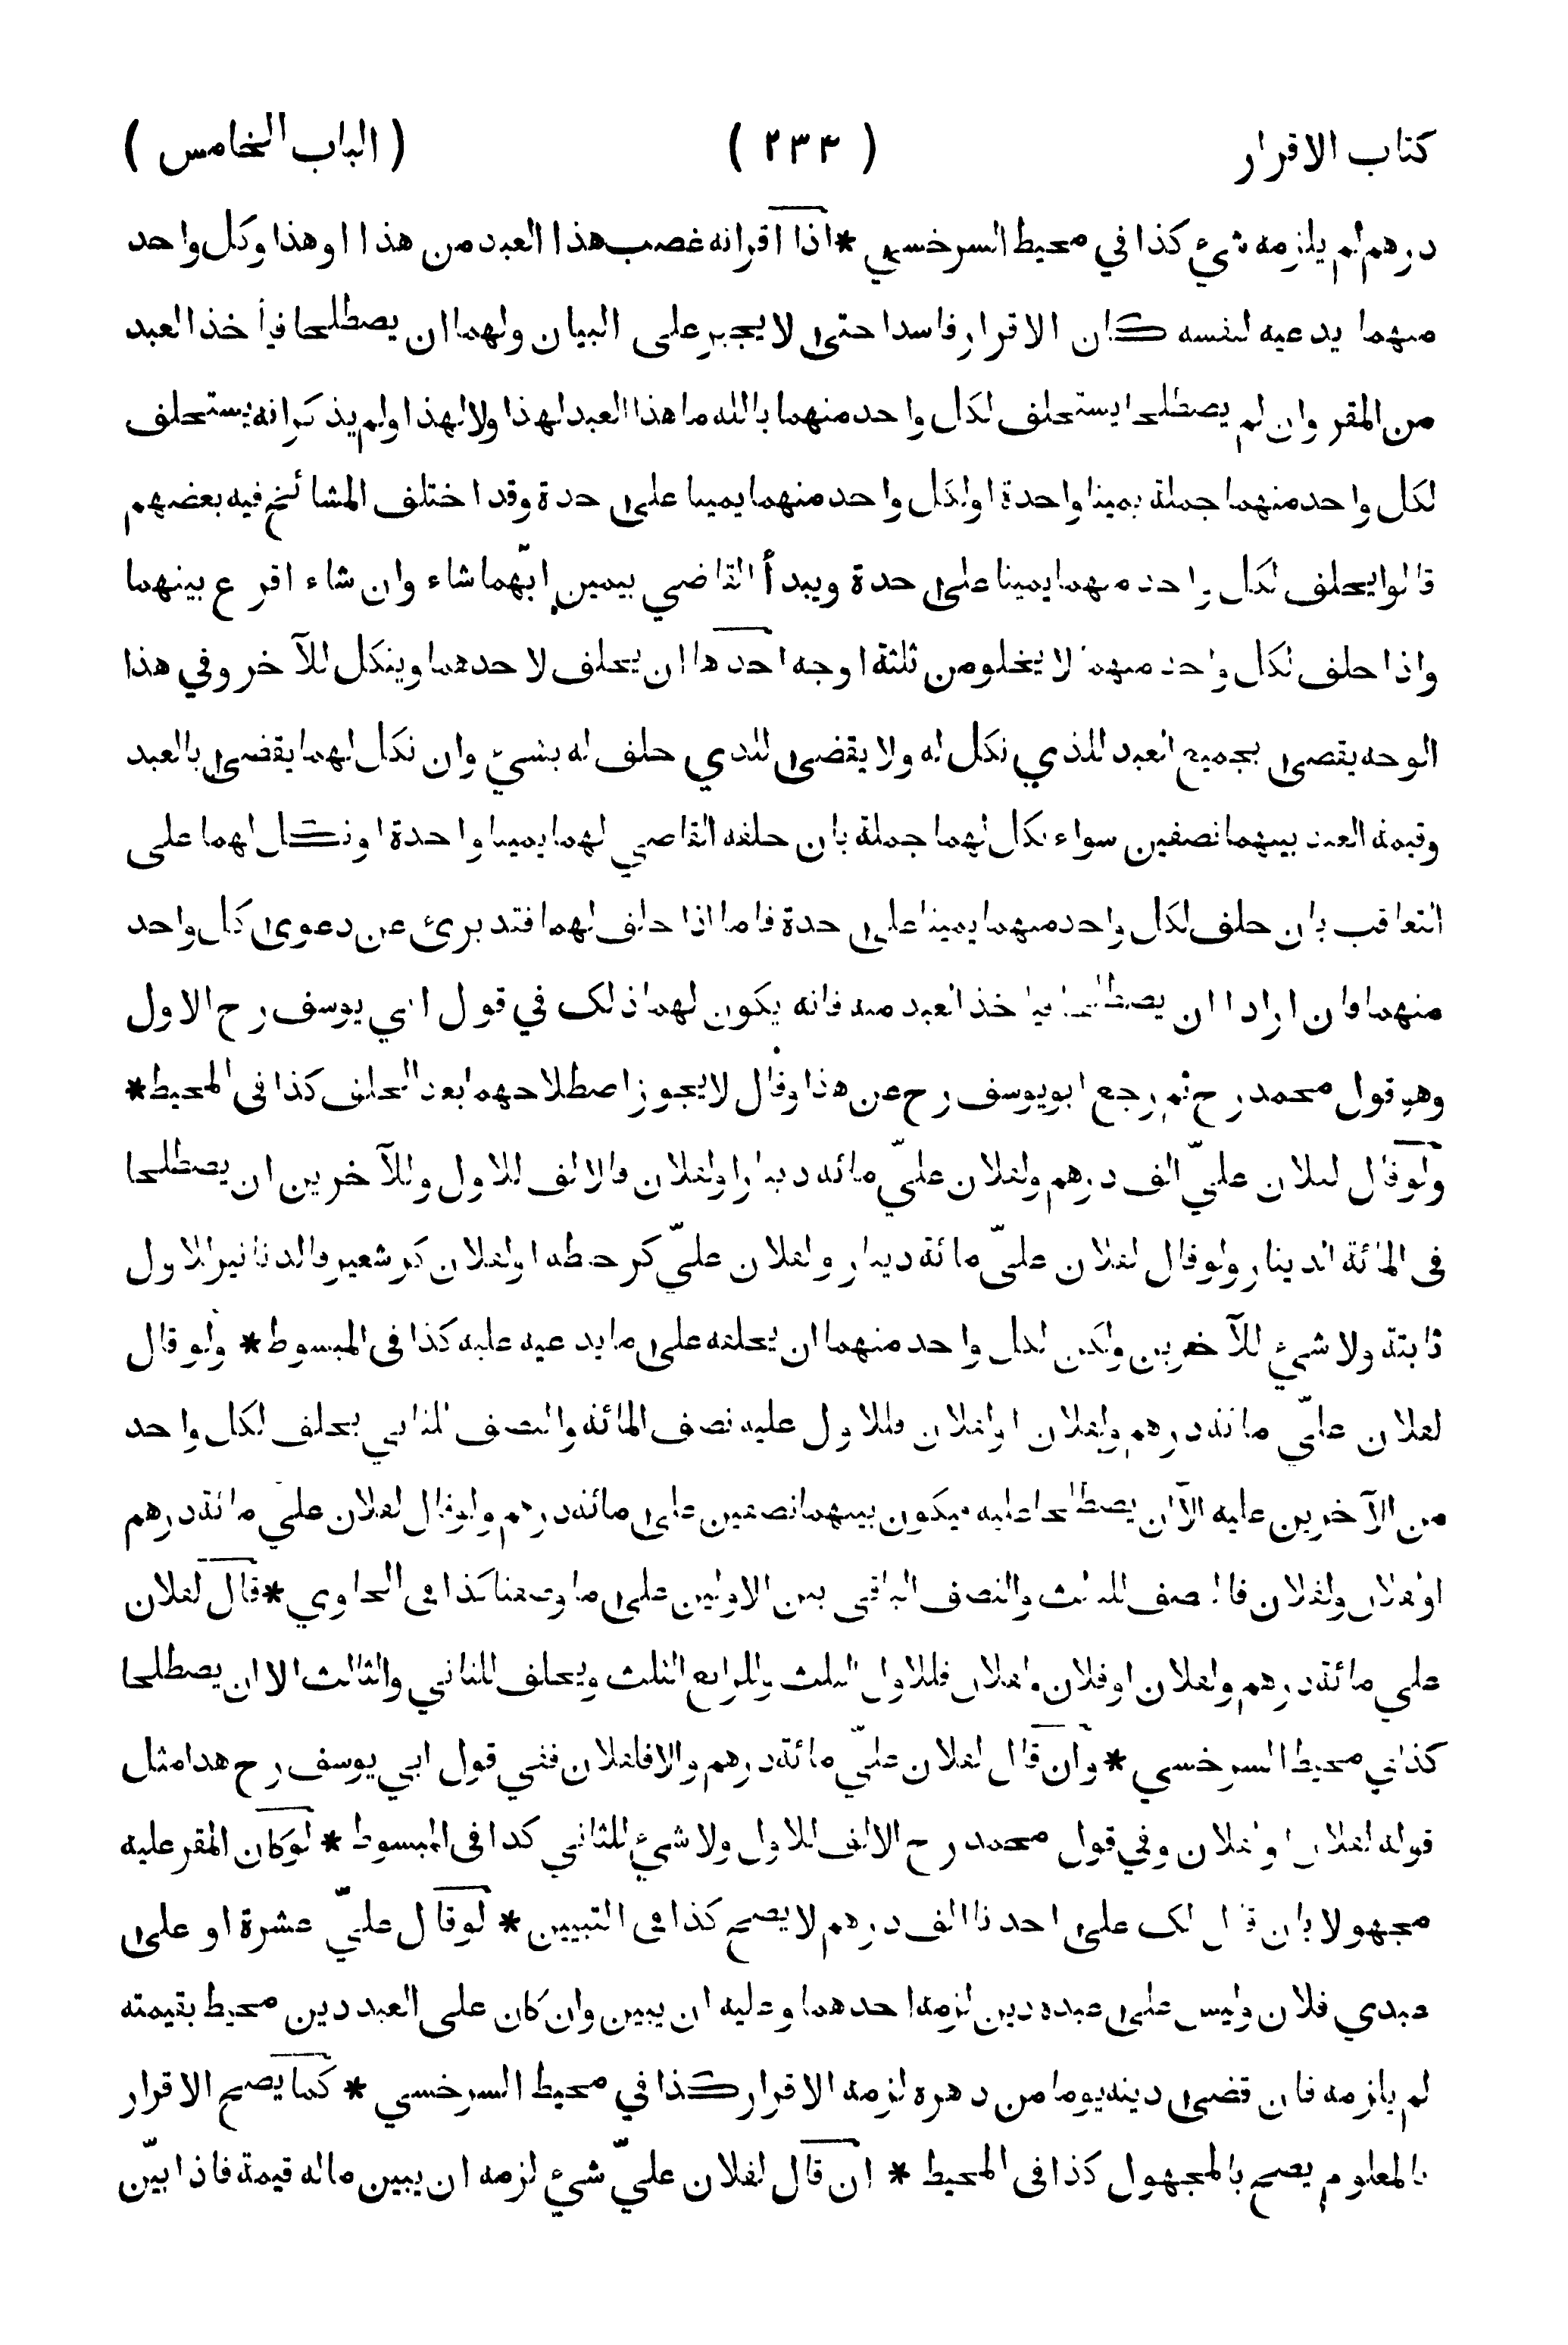 كتاب الاقرار ( ٢٣٤ ) ( الباب الخامس )
درهم لم يلزمه شيء كذا في محيط السرخسي * اذا اقرانه غصب هذا العبد من هذا اوهذا وكل واحد
منهما يدعيه لنفسه كان الاقرار فاسدا حتى لا يجبر على البيان ولهما ان يصطلحا فيأخذ العبد
من المقر وان لم يصطلحا يستحلف لكل واحد منهما بالله ما هذا العبد لهذا ولا لهذا ولم يذكر انه يستحلف
لكل واحد منهما جملة يمينا واحدة اولكل واحد منهما يمينا على حدة وقد اختلف المشائخ فيه بعضهم
قالوا يحلف لكل واحد منهما يمينا على حدة ويبدأ القاضي بيمين ايّهما شاء وان شاء اقرع بينهما
واذا حلف لكل واحد منهما لا يخلو من ثلثة اوجه احدها ان يحلف لاحدهما وينكل للآخر وفي هذا
الوجه يقضى بجميع العبد للذي نكل له ولا يقضى للذي حلف له بشيء وان نكل لهما يقضى بالعبد
وقيمة العبد بينهما نصفين سواء نكل لهما جملة بان حلفه القاضي لهما يمينا واحدة اونكل لهما على
التعاقب بان حلف لكل واحد منهما يمينا على حدة فاما اذا حلف لهما فقد برئ عن دعوى كل واحد
منهما فان ارادا ان يصطلحا فياخذ العبد منه فانه يكون لهما ذلك في قول ابي يوسف رح الاول
وهو قول محمد رح ثم رجع ابو يوسف رح عن هذا وقال لا يجوز اصطلاحهما بعد الحلف كذا فى المحيط *
ولو قال لفلان عليّ الف درهم ولفلان عليّ مائه دينار اولفلان فالالف للاول وللآخرين ان يصطلحا
فى المائة الدينار ولو قال لفلان عليّ مائة دينار ولفلان عليّ كر حنطه اولفلان كر شعير فالدنانير للاول
ثابتة ولا شيء للآخرين ولكن لكل واحد منهما ان يحلفه على ما يدعيه عليه كذا فى المبسوط * ولو قال
لفلان عليّ مائة درهم ولفلان اولفلان فللاول عليه نصف المائة والنصف الثاني يحلف لكل واحد
من الآخرين عليه الا ان يصطلحا عليه فيكون بينهما نصفين على مائة درهم ولو قال لفلان عليّ مائة درهم
اولفلان ولفلان فالنصف للثالث والنصف الباقى بين الاولين على ما وصفنا كذا فى الحاوي * قال لفلان
علي مائة درهم ولفلان اوفلان ولفلان فللاول الثلث وللرابع الثلث ويحلف للثاني والثالث الا ان يصطلحا
كذا في محيط السرخسي * وان قال لفلان عليّ مائة درهم والا فلفلان ففي قول ابي يوسف رح هذا مثل
قوله لفلان اولفلان وفي قول محمد رح الالف للاول ولا شيء للثاني كذا فى المبسوط * لو كان المقر عليه
مجهولا بان قال لك على احدنا الف درهم لا يصح كذا فى التبيين * لو قال عليّ عشرة او على
عبدي فلان وليس على عبده دين لزمه احدهما وعليه ان يبين وان كان على العبد دين محيط بقيمته
لم يلزمه فان قضى دينه يوما من دهره لزمه الاقرار كذا في محيط السرخسي * كما يصح الاقرار
بالمعلوم يصح بالمجهول كذا فى المحيط * ان قال لفلان عليّ شيء لزمه ان يبين ماله قيمة فاذا بيّن